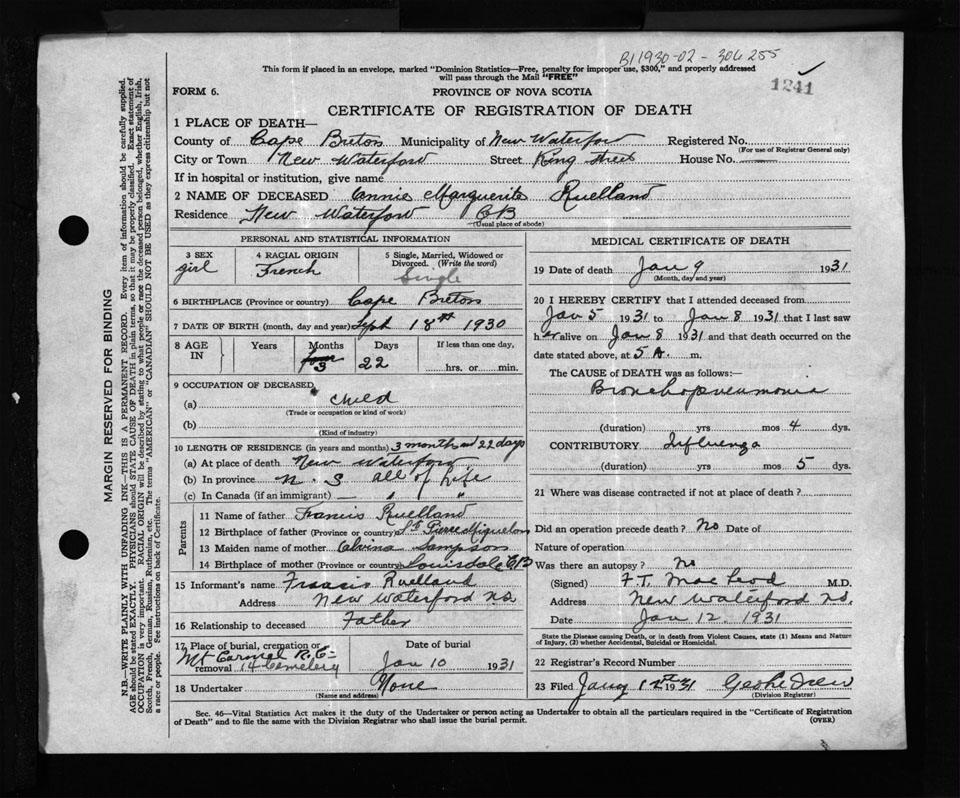 B11930-02-306255
1241
This form if placed in an envelope, marked "Dominion Statistics—Free, penalty for improper use, $300," and properly addressed
will pass through the Mail "FREE"
FORM 6.
PROVINCE OF NOVA SCOTIA
CERTIFICATE OF REGISTRATION OF DEATH
1 PLACE OF DEATH—
County of Cape Breton Municipality of New Waterford Registered No.
(For use of Registrar General only)
City or Town New Waterford Street King Street House No.
If in hospital or institution, give name
2 NAME OF DECEASED Annie Marguerite Ruelland
Residence New Waterford CB
(Usual place of abode)
PERSONAL AND STATISTICAL INFORMATION
3 SEX girl
4 RACIAL ORIGIN French
5 Single, Married, Widowed or Divorced. (Write the word) Single
6 BIRTHPLACE (Province or country) Cape Breton
7 DATE OF BIRTH (month, day and year) Sept 18th 1930
8 AGE IN Years Months Days If less than one day,
four 3 22 hrs. or min.
9 OCCUPATION OF DECEASED
(a) child
(Trade or occupation or kind of work)
(b)
(Kind of industry)
10 LENGTH OF RESIDENCE (in years and months) 3 months and 22 days
(a) At place of death New Waterford
(b) In province N. S all of life
(c) In Canada (if an immigrant) — " "
Parents
11 Name of father Francis Ruelland
12 Birthplace of father (Province or country) St Pierre Miquelon
13 Maiden name of mother Elvina Sampson
14 Birthplace of mother (Province or country) Louisdale CB
15 Informant's name Francis Ruelland
Address New Waterford N.S.
16 Relationship to deceased Father
17 Place of burial, cremation or removal Mt Carmel R.C. Cemetery
Date of burial Jan 10 1931
18 Undertaker None
(Name and address)
MEDICAL CERTIFICATE OF DEATH
19 Date of death Jan 9 1931
(Month, day and year)
20 I HEREBY CERTIFY that I attended deceased from
Jan 5 1931 to Jan 8 1931 that I last saw
her alive on Jan 8 1931 and that death occurred on the
date stated above, at 5 A. m.
The CAUSE of DEATH was as follows:—
Bronchopneumonia
(duration) yrs mos 4 dys.
CONTRIBUTORY Influenza
(duration) yrs mos 5 dys.
21 Where was disease contracted if not at place of death?
Did an operation precede death? No Date of
Nature of operation
Was there an autopsy? No
(Signed) F.T. MacLeod M.D.
Address New Waterford N.S.
Date Jan 12 1931
State the Disease causing Death, or in death from Violent Causes, state (1) Means and Nature
of Injury, (2) whether Accidental, Suicidal or Homicidal.
22 Registrar's Record Number
23 Filed Jany 12th 1931
(Division Registrar)
Sec. 46—Vital Statistics Act makes it the duty of the Undertaker or person acting as Undertaker to obtain all the particulars required in the "Certificate of Registration
of Death" and to file the same with the Division Registrar who shall issue the burial permit.
(OVER)
MARGIN RESERVED FOR BINDING
N.B.—WRITE PLAINLY WITH UNFADING INK—THIS IS A PERMANENT RECORD. Every item of information should be carefully supplied.
AGE should be stated EXACTLY. PHYSICIANS should STATE CAUSE OF DEATH in plain terms, so that it may be properly classified. Exact statement of
OCCUPATION is very important. RACIAL ORIGIN will be described by stating to what people or race the deceased person belonged, whether English, Irish,
Scotch, French, German, Russian, Ruthenian, etc. The terms "AMERICAN" or "CANADIAN" SHOULD NOT BE USED as they express citizenship but not
a race or people. See instructions on back of Certificate.